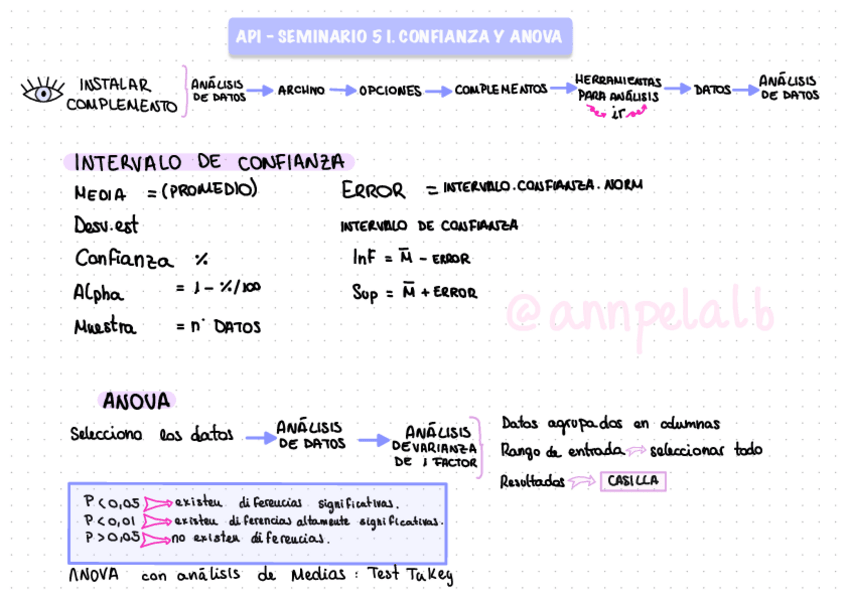 API - SEMINARIO 5 I. CONFIANZA Y ANOVA
INSTALAR COMPLEMENTO
ANÁLISIS DE DATOS → ARCHIVO → OPCIONES → COMPLEMENTOS → HERRAMIENTAS PARA ANÁLISIS → DATOS → ANÁLISIS DE DATOS
ir
INTERVALO DE CONFIANZA
MEDIA = (PROMEDIO)
Desv.est
Confianza %
Alpha = 1 - %/100
Muestra = n° DATOS
ERROR = INTERVALO.CONFIANZA.NORM
INTERVALO DE CONFIANZA
Inf = M̄ - ERROR
Sup = M̄ + ERROR
@annpelalb
ANOVA
Selecciono los datos → ANÁLISIS DE DATOS → ANÁLISIS DE VARIANZA DE 1 FACTOR
Datos agrupados en columnas
Rango de entrada ⇨ seleccionar todo
Resultados ⇨ CASILLA
P < 0,05 → existen diferencias significativas.
P < 0,01 → existen diferencias altamente significativas.
P > 0,05 → no existen diferencias.
ANOVA con análisis de Medias : Test Tukey